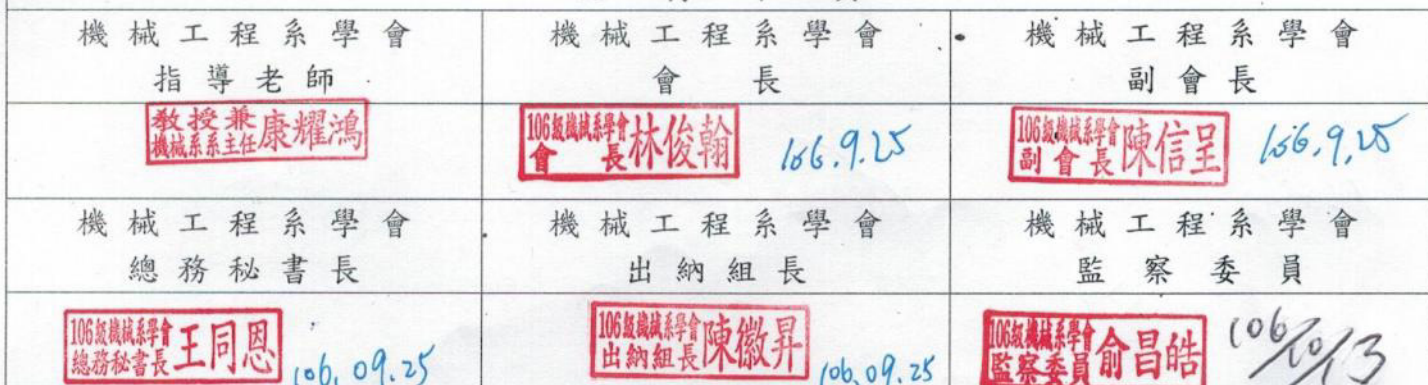 機械工程系學會 機械工程系學會 機械工程系學會
指導老師 會長 副會長
教授兼機械系系主任 康耀鴻
106級機械系學會會長 林俊翰 106.9.25
106級機械系學會副會長 陳信呈 106.9.25
機械工程系學會 機械工程系學會 機械工程系學會
總務秘書長 出納組長 監察委員
106級機械系學會總務秘書長 王同恩 106.09.25
106級機械系學會出納組長 陳徽昇 106.09.25
106級機械系學會監察委員 俞昌皓 106/10/13